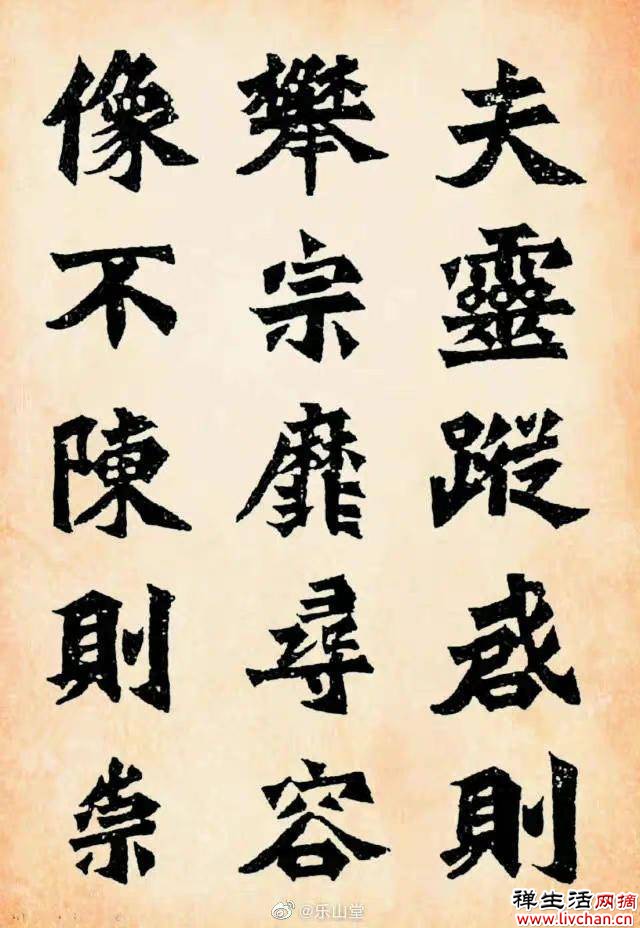 夫靈蹤啟則
攀宗靡尋容
像不陳則崇
@乐山堂
禅生活网摘
www.livchan.cn